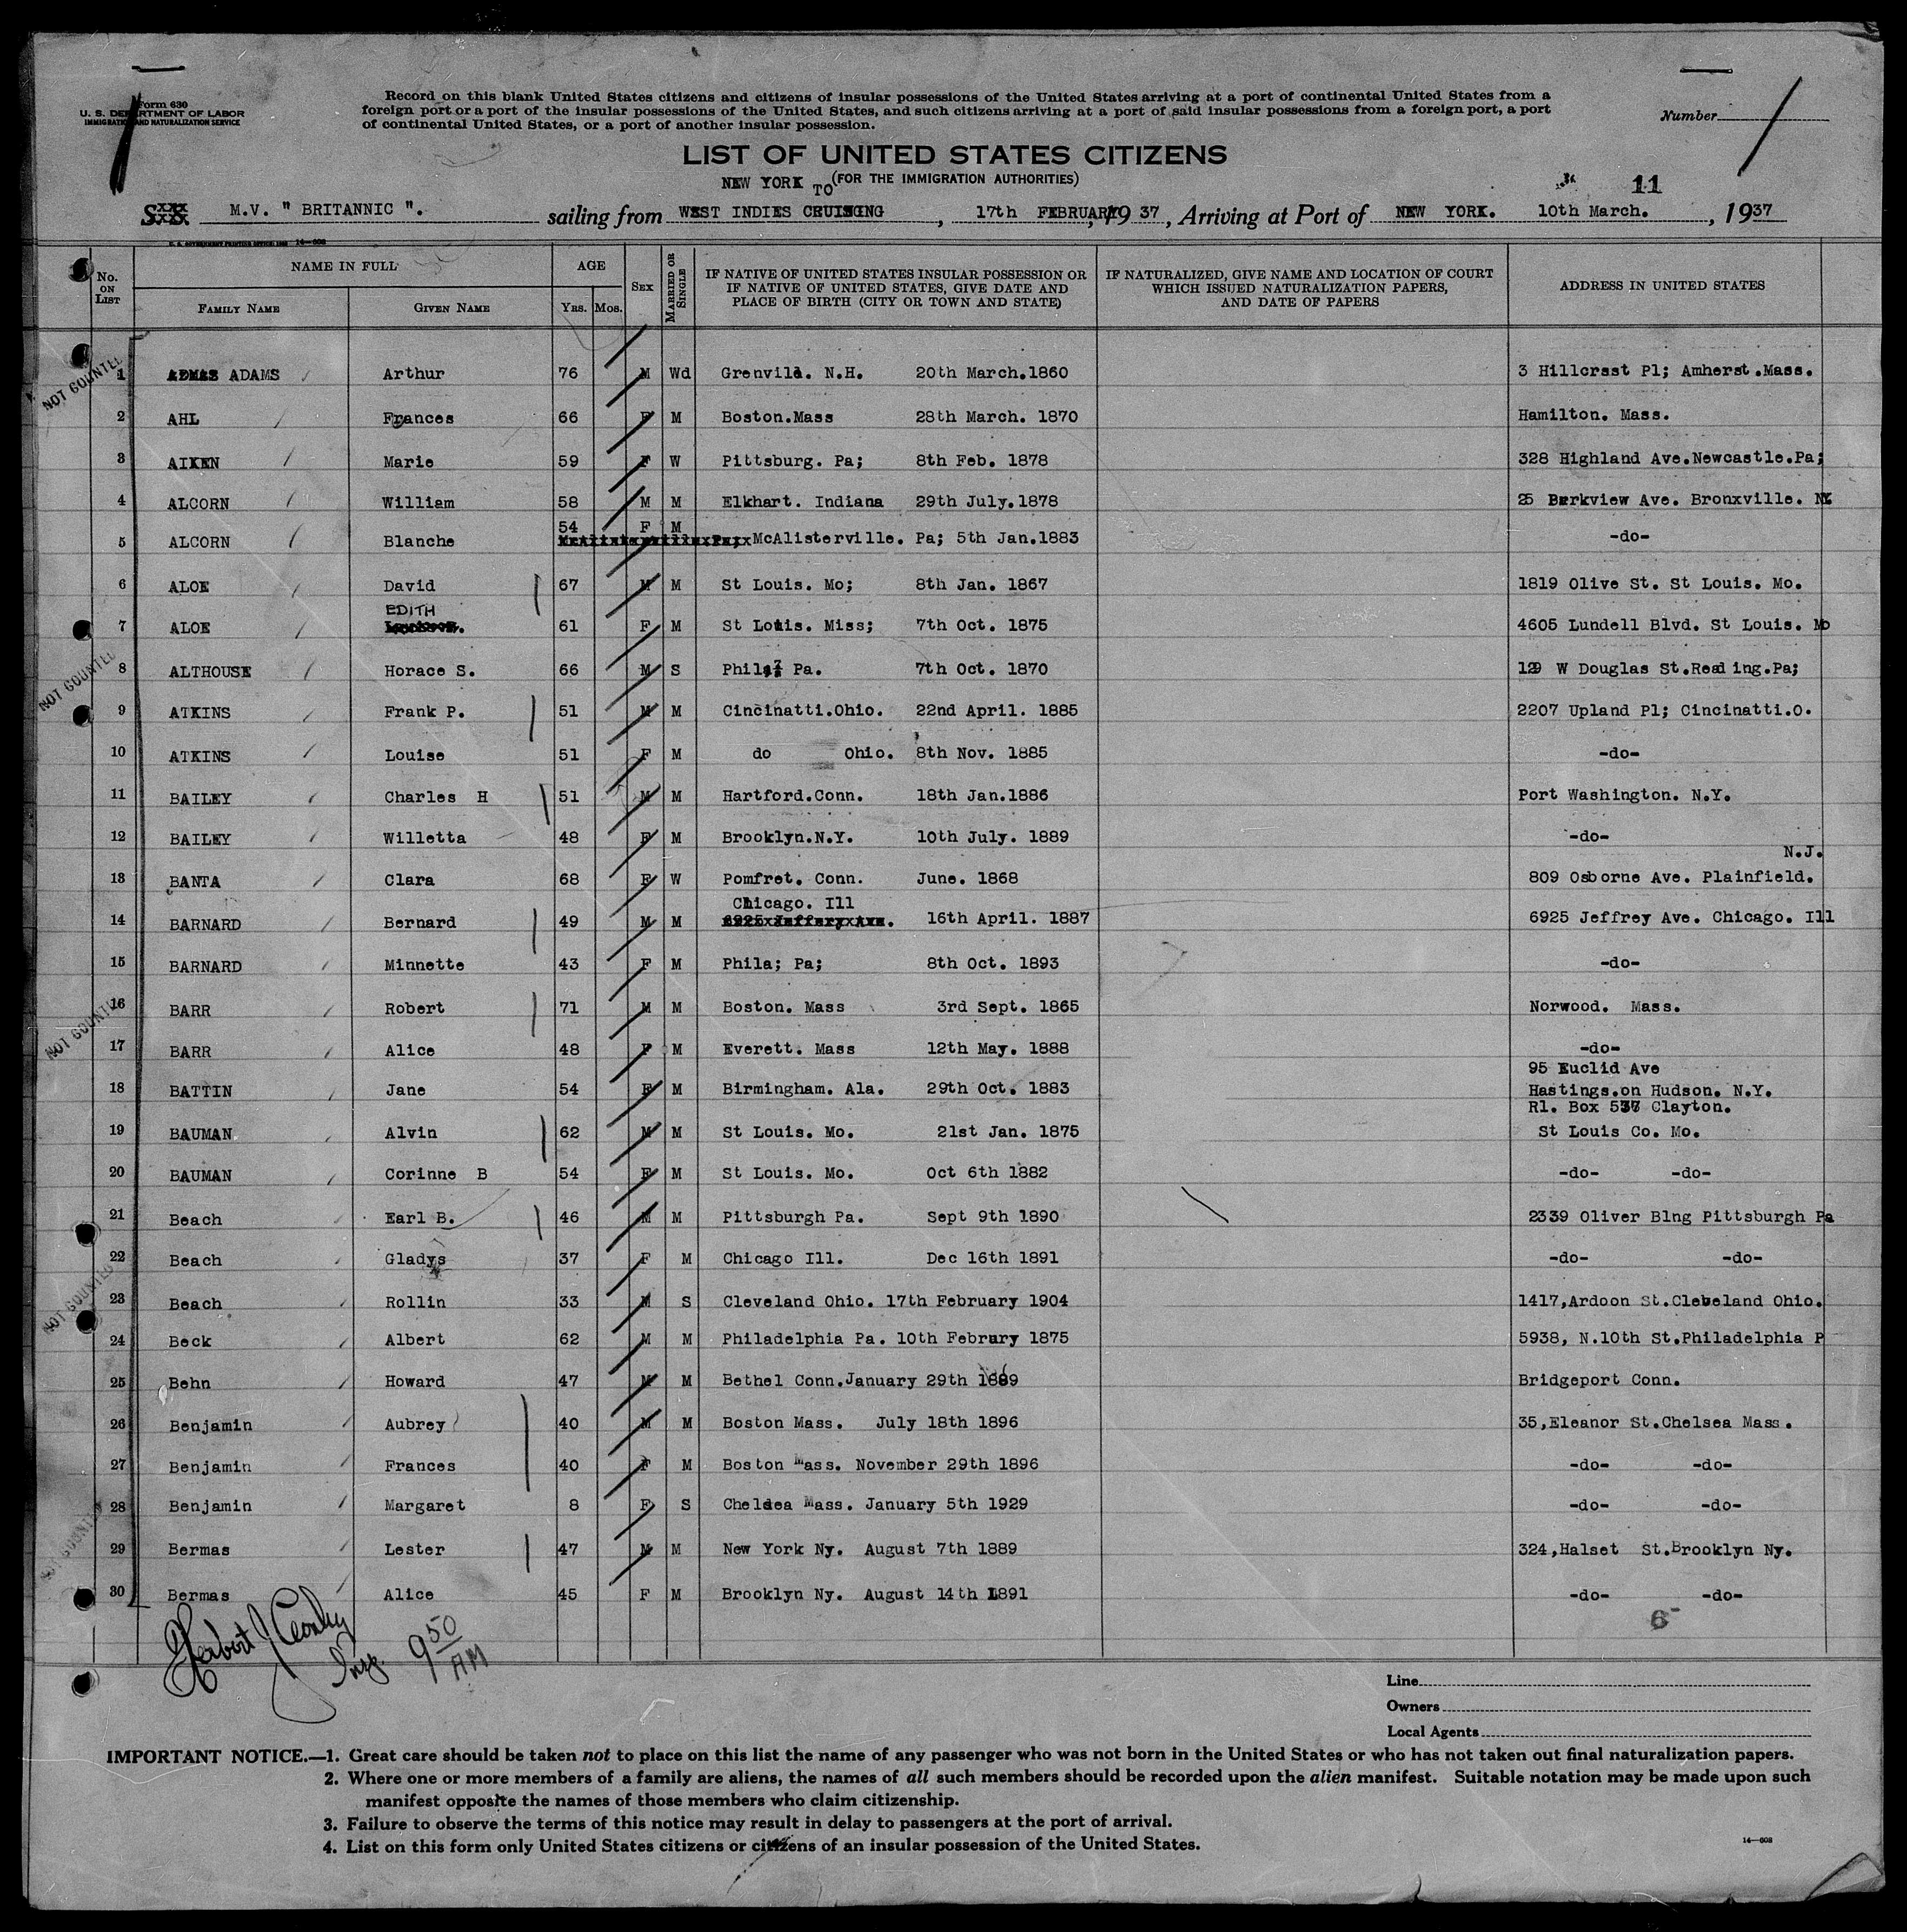 Form 630
U. S. DEPARTMENT OF LABOR
IMMIGRATION AND NATURALIZATION SERVICE
Record on this blank United States citizens and citizens of insular possessions of the United States arriving at a port of continental United States from a
foreign port or a port of the insular possessions of the United States, and such citizens arriving at a port of said insular possessions from a foreign port, a port
of continental United States, or a port of another insular possession.
Number
LIST OF UNITED STATES CITIZENS
NEW YORK TO (FOR THE IMMIGRATION AUTHORITIES)
11
M.V. " BRITANNIC ". sailing from WEST INDIES CRUISING, 17th FEBRUARY, 1937, Arriving at Port of NEW YORK. 10th March., 1937
No. ON LIST NAME IN FULL AGE SEX MARRIED OR SINGLE IF NATIVE OF UNITED STATES INSULAR POSSESSION OR IF NATIVE OF UNITED STATES, GIVE DATE AND PLACE OF BIRTH (CITY OR TOWN AND STATE) IF NATURALIZED, GIVE NAME AND LOCATION OF COURT WHICH ISSUED NATURALIZATION PAPERS, AND DATE OF PAPERS ADDRESS IN UNITED STATES
FAMILY NAME GIVEN NAME YRS. MOS.
NOT COUNTED
1 ADAMS Arthur 76 M Wd Grenvil. N.H. 20th March.1860 3 Hillcrast Pl; Amherst.Mass.
2 AHL Frances 66 F M Boston.Mass 28th March. 1870 Hamilton. Mass.
3 AIKEN Marie 59 F W Pittsburg. Pa; 8th Feb. 1878 328 Highland Ave.Newcastle.Pa;
4 ALCORN William 58 M M Elkhart. Indiana 29th July.1878 25 Parkview Ave. Bronxville. NY
5 ALCORN Blanche 54 F M McAlisterville. Pa; 5th Jan.1883 -do-
6 ALOE David 67 M M St Louis. Mo; 8th Jan. 1867 1819 Olive St. St Louis. Mo.
7 ALOE EDITH 61 F M St Louis. Miss; 7th Oct. 1875 4605 Lundell Blvd. St Louis. Mo
NOT COUNTED
8 ALTHOUSE Horace S. 66 M S Phila; Pa. 7th Oct. 1870 129 W Douglas St.Reading.Pa;
9 ATKINS Frank P. 51 M M Cincinatti.Ohio. 22nd April. 1885 2207 Upland Pl; Cincinatti.O.
10 ATKINS Louise 51 F M do Ohio. 8th Nov. 1885 -do-
11 BAILEY Charles H 51 M M Hartford.Conn. 18th Jan.1886 Port Washington. N.Y.
12 BAILEY Willetta 48 F M Brooklyn.N.Y. 10th July. 1889 -do-
N.J.
13 BANTA Clara 68 F W Pomfret. Conn. June. 1868 809 Osborne Ave. Plainfield.
Chicago. Ill
14 BARNARD Bernard 49 M M 16th April. 1887 6925 Jeffrey Ave. Chicago. Ill
15 BARNARD Minnette 43 F M Phila; Pa; 8th Oct. 1893 -do-
NOT COUNTED
16 BARR Robert 71 M M Boston. Mass 3rd Sept. 1865 Norwood. Mass.
17 BARR Alice 48 F M Everett. Mass 12th May. 1888 -do-
95 Euclid Ave
18 BATTIN Jane 54 F M Birmingham. Ala. 29th Oct. 1883 Hastings.on Hudson. N.Y.
Rl. Box 537 Clayton.
19 BAUMAN. Alvin 62 M M St Louis. Mo. 21st Jan. 1875 St Louis Co. Mo.
20 BAUMAN Corinne B 54 F M St Louis. Mo. Oct 6th 1882 -do- -do-
21 Beach Earl B. 46 M M Pittsburgh Pa. Sept 9th 1890 2339 Oliver Blng Pittsburgh Pa
22 Beach Gladys 37 F M Chicago Ill. Dec 16th 1891 -do- -do-
NOT COUNTED
23 Beach Rollin 33 M S Cleveland Ohio. 17th February 1904 1417,Ardoon St.Cleveland Ohio.
24 Beck Albert 62 M M Philadelphia Pa. 10th Februry 1875 5938, N.10th St.Philadelphia P
25 Behn Howard 47 M M Bethel Conn.January 29th 1889 Bridgeport Conn.
26 Benjamin Aubrey 40 M M Boston Mass. July 18th 1896 35,Eleanor St.Chelsea Mass.
27 Benjamin Frances 40 F M Boston Mass. November 29th 1896 -do- -do-
28 Benjamin Margaret 8 F S Chelsea Mass. January 5th 1929 -do- -do-
NOT COUNTED
29 Bermas Lester 47 M M New York Ny. August 7th 1889 324,Halset St.Brooklyn Ny.
30 Bermas Alice 45 F M Brooklyn Ny. August 14th 1891 -do- -do-
6
Herbert J Conley
Insp. 9 50 AM
Line
Owners
Local Agents
IMPORTANT NOTICE.—1. Great care should be taken not to place on this list the name of any passenger who was not born in the United States or who has not taken out final naturalization papers.
2. Where one or more members of a family are aliens, the names of all such members should be recorded upon the alien manifest. Suitable notation may be made upon such
manifest opposite the names of those members who claim citizenship.
3. Failure to observe the terms of this notice may result in delay to passengers at the port of arrival.
4. List on this form only United States citizens or citizens of an insular possession of the United States.
14—608